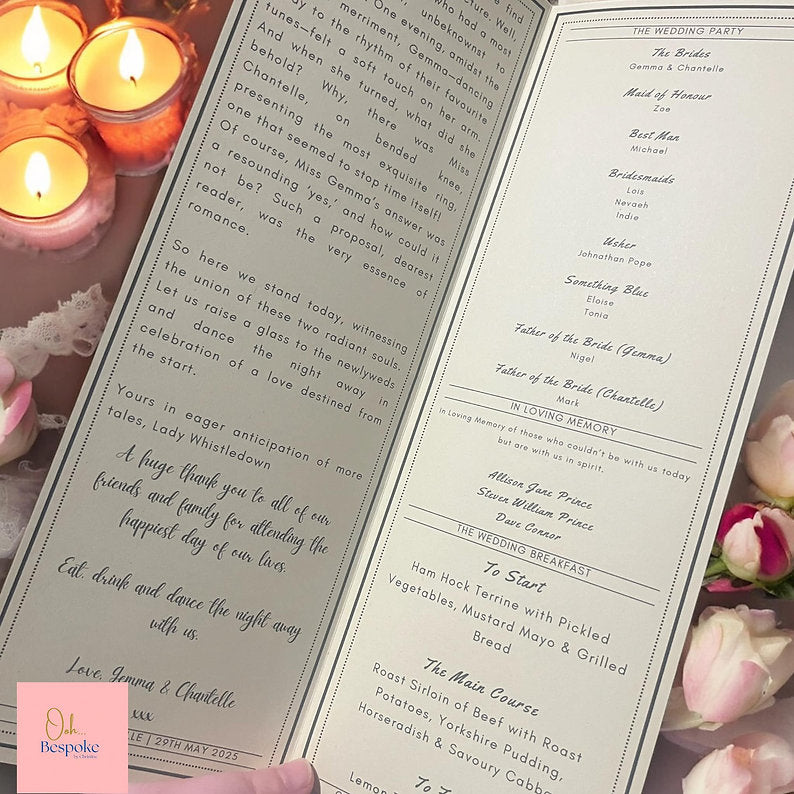 find
ture. Well,
who had a most
unbeknownst to
One evening, amidst the
merriment, Gemma—dancing
to the rhythm of their favourite
tunes—felt a soft touch on her arm.
And when she turned, what did she
behold? Why, there was Miss
Chantelle, on bended knee,
presenting the most exquisite ring,
one that seemed to stop time itself!
Of course, Miss Gemma's answer was
a resounding 'yes,' and how could it
not be? Such a proposal, dearest
reader, was the very essence of
romance.
So here we stand today, witnessing
the union of these two radiant souls.
Let us raise a glass to the newlyweds
and dance the night away in
celebration of a love destined from
the start.
Yours in eager anticipation of more
tales, Lady Whistledown
A huge thank you to all of our
friends and family for attending the
happiest day of our lives.
Eat, drink and dance the night away
with us.
Love, Gemma & Chantelle
xxx
LE | 29TH MAY 2025
Ooh...
Bespoke
by Christine
THE WEDDING PARTY
The Brides
Gemma & Chantelle
Maid of Honour
Zoe
Best Man
Michael
Bridesmaids
Lois
Nevaeh
Indie
Usher
Johnathan Pope
Something Blue
Eloise
Tonia
Father of the Bride (Gemma)
Nigel
Father of the Bride (Chantelle)
Mark
IN LOVING MEMORY
In Loving Memory of those who couldn't be with us today
but are with us in spirit.
Allison Jane Prince
Steven William Prince
Dave Connor
THE WEDDING BREAKFAST
To Start
Ham Hock Terrine with Pickled
Vegetables, Mustard Mayo & Grilled
Bread
The Main Course
Roast Sirloin of Beef with Roast
Potatoes, Yorkshire Pudding,
Horseradish & Savoury Cabba
To F
Lemon